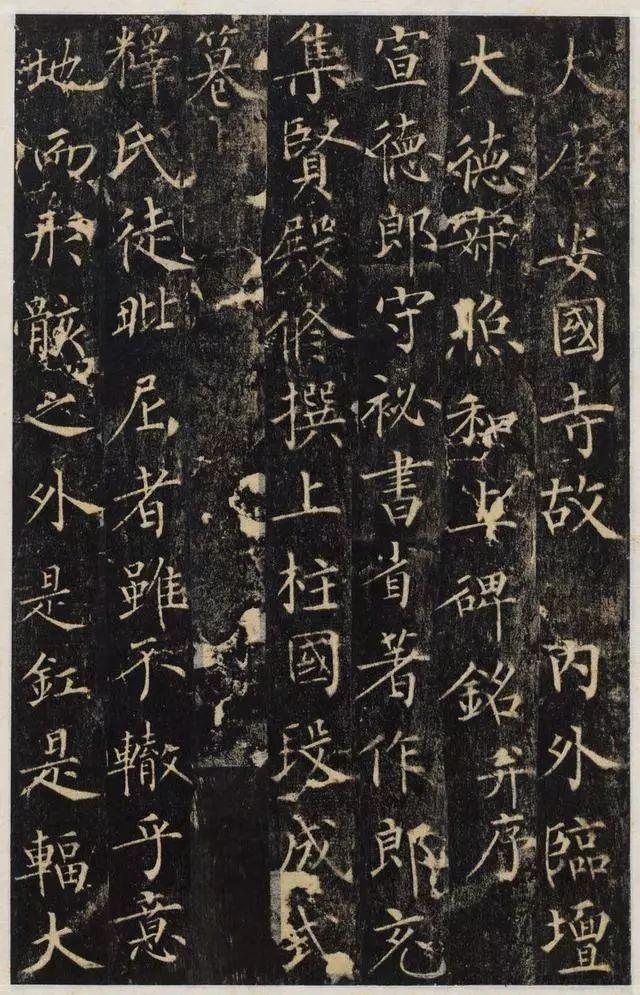 大唐安國寺故 內外臨壇
大德寂照和上碑銘并序
宣德郎守祕書省著作郎充
集賢殿修撰上柱國段成式
釋氏徒毗尼者雖不轍乎意
地而形骸之外是釭是輻大